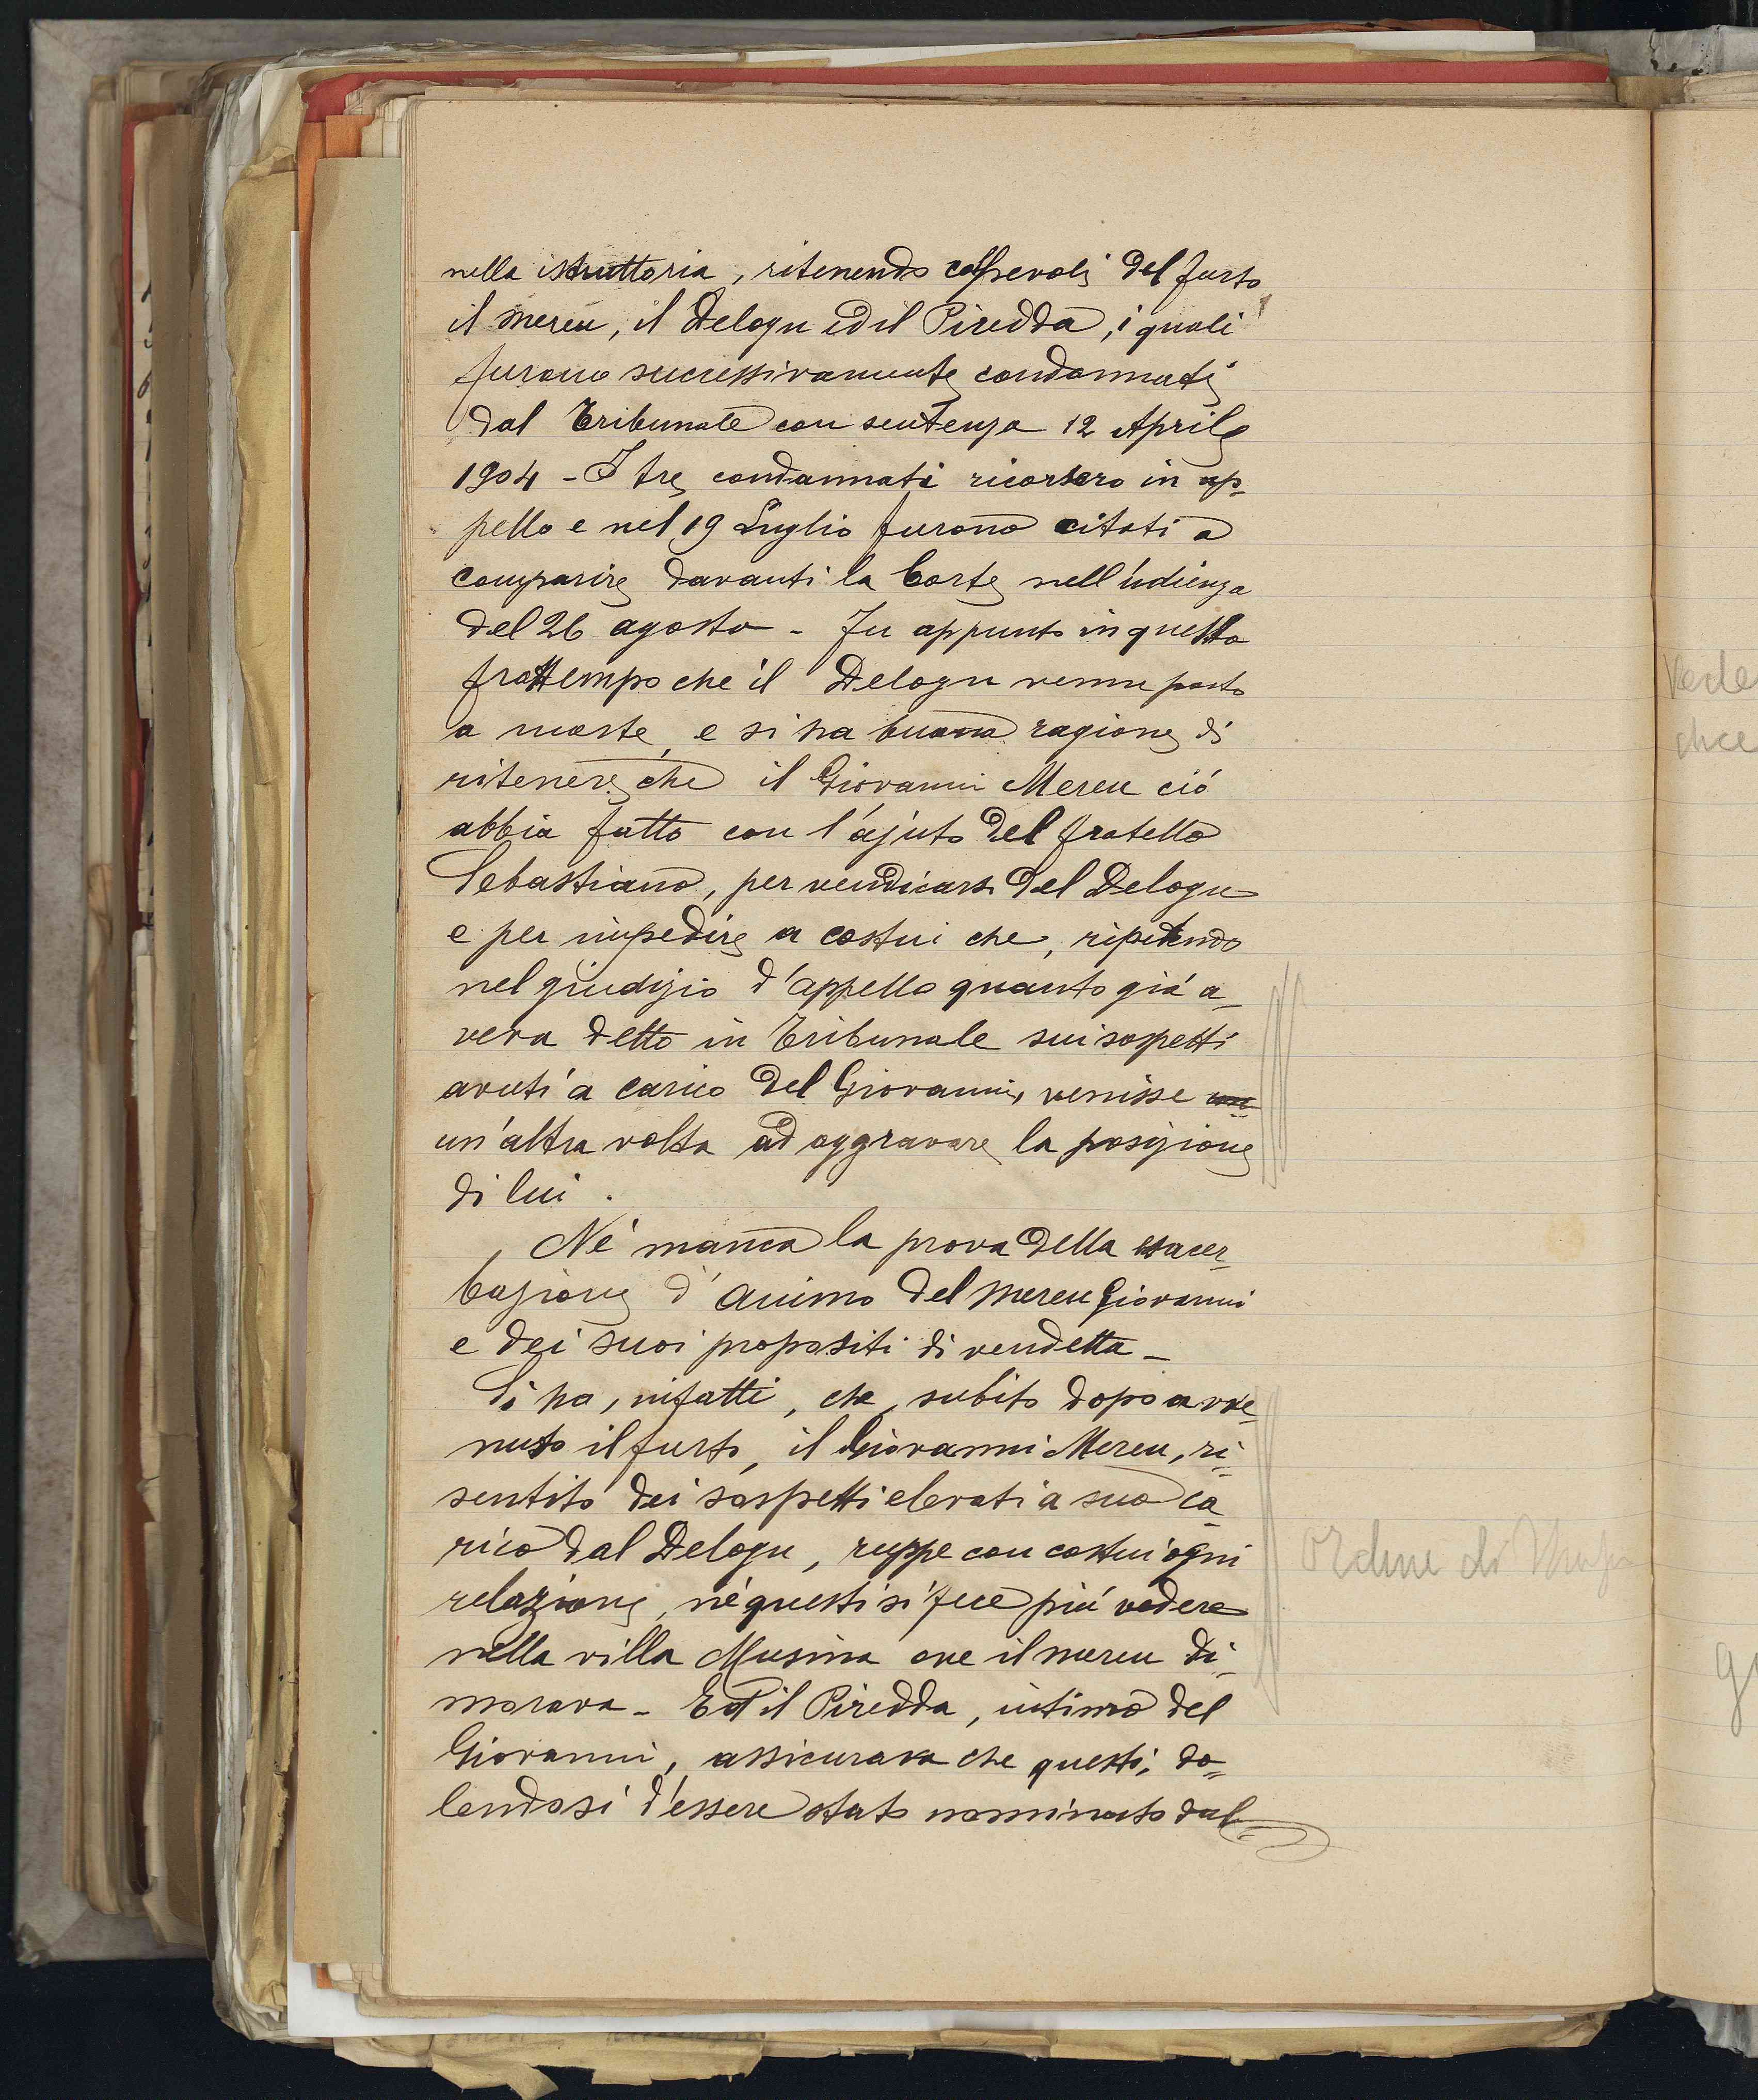 nella istruttoria, ritenendo colpevoli del furto
il Mereu, il Delogu ed il Piredda, i quali
furono successivamente condannati
dal Tribunale con sentenza 12 Aprile
1904 - I tre condannati ricorsero in ap-
pello e nel 19 Luglio furono citati a
comparire davanti la Corte nell'udienza
del 26 agosto - Fu appunto in questo
frattempo che il Delogu venne posto
a morte, e si ha buona ragione di
ritenere che il Giovanni Mereu ciò
abbia fatto con l'ajuto del fratello
Sebastiano, per vendicarsi del Delogu
e per impedire a costui che, ripetendo
nel giudizio d'appello quanto già a-
veva detto in Tribunale sui sospetti
avuti a carico del Giovanni, venisse
un'altra volta ad aggravare la posizione
di lui.
Né manca la prova della esacer-
bazione d'animo del Mereu Giovanni
e dei suoi propositi di vendetta -
Si ha, infatti, che, subito dopo avve-
nuto il furto, il Giovanni Mereu, ri-
sentito dei sospetti elevati a suo ca-
rico dal Delogu, ruppe con costui ogni
relazione, né questi si fece più vedere
nella villa Musina ove il Mereu di-
morava - Ed il Piredda, intimo del
Giovanni, assicurava che questi, do-
lendosi d'essere stato nominato dal
Ordine di
Vede